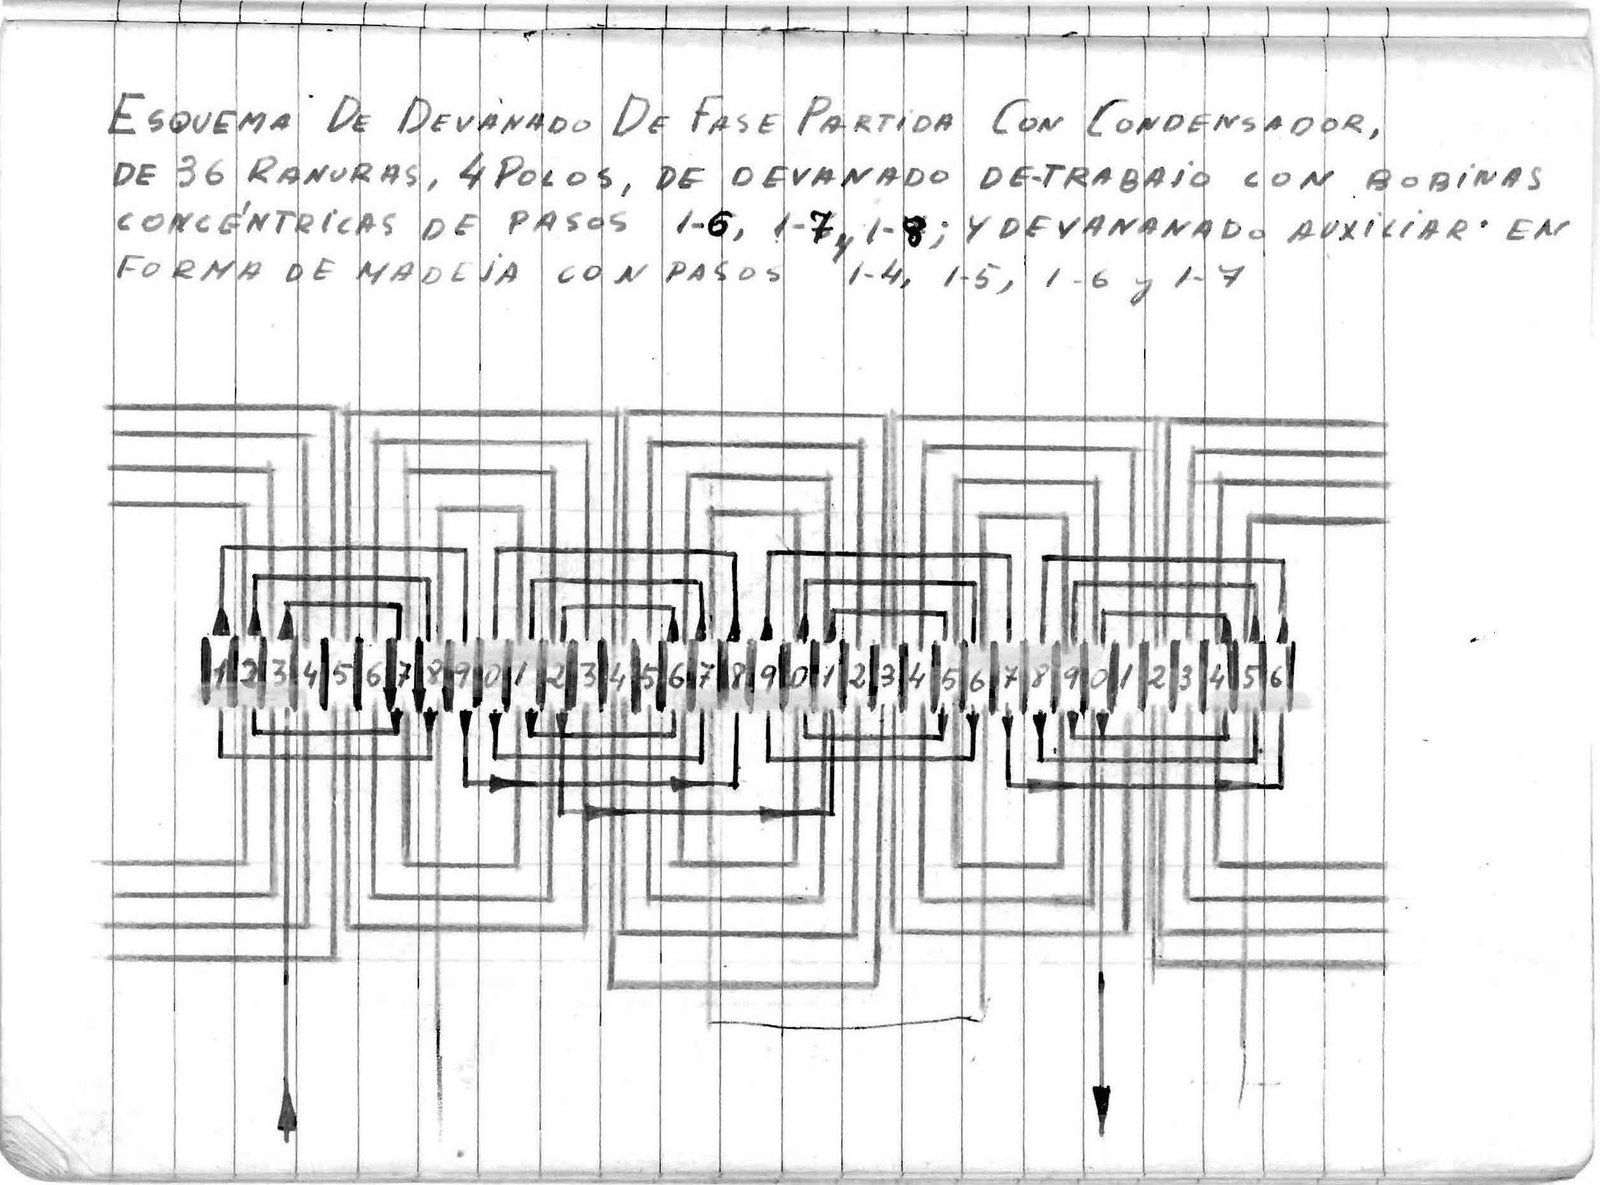 ESQUEMA DE DEVANADO DE FASE PARTIDA CON CONDENSADOR,
DE 36 RANURAS, 4 POLOS, DE DEVANADO DE-TRABAJO CON BOBINAS
CONCÉNTRICAS DE PASOS 1-6, 1-7 y 1-8; Y DEVANANADO AUXILIAR EN
FORMA DE MADEJA CON PASOS 1-4, 1-5, 1-6 y 1-7
1 2 3 4 5 6 7 8 9 0 1 2 3 4 5 6 7 8 9 0 1 2 3 4 5 6 7 8 9 0 1 2 3 4 5 6